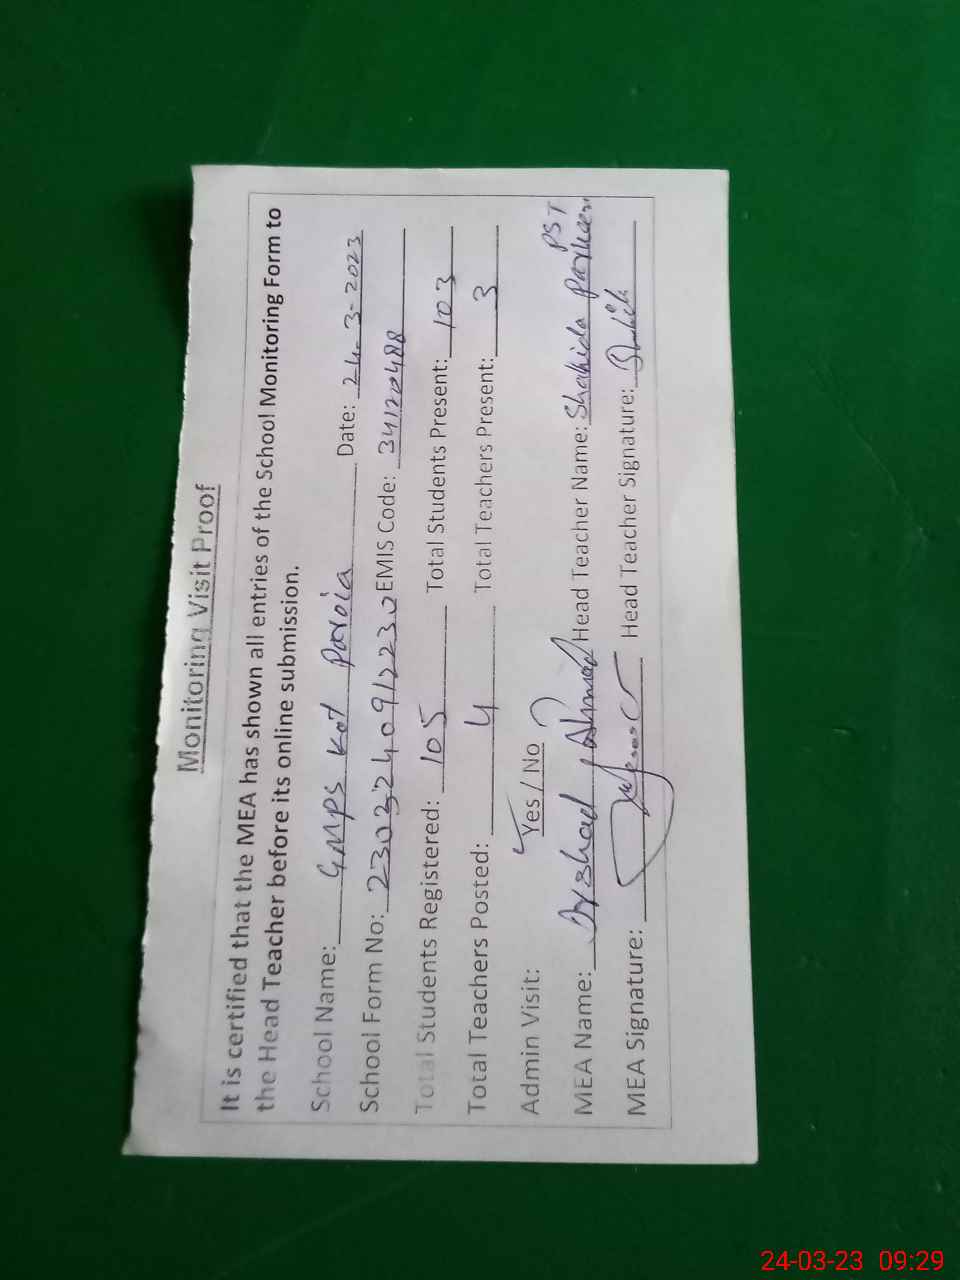 Monitoring Visit Proof
It is certified that the MEA has shown all entries of the School Monitoring Form to
the Head Teacher before its online submission.
School Name: GMPS Kot Paroia Date: 24-3-2023
School Form No: 2303240912230 EMIS Code: 34120488
Total Students Registered: 105 Total Students Present: 103
Total Teachers Posted: 4 Total Teachers Present: 3
Admin Visit: Yes / No PST
MEA Name: Arshad Ahmad Head Teacher Name: Shahida Parveen
MEA Signature: Head Teacher Signature:
24-03-23 09:29